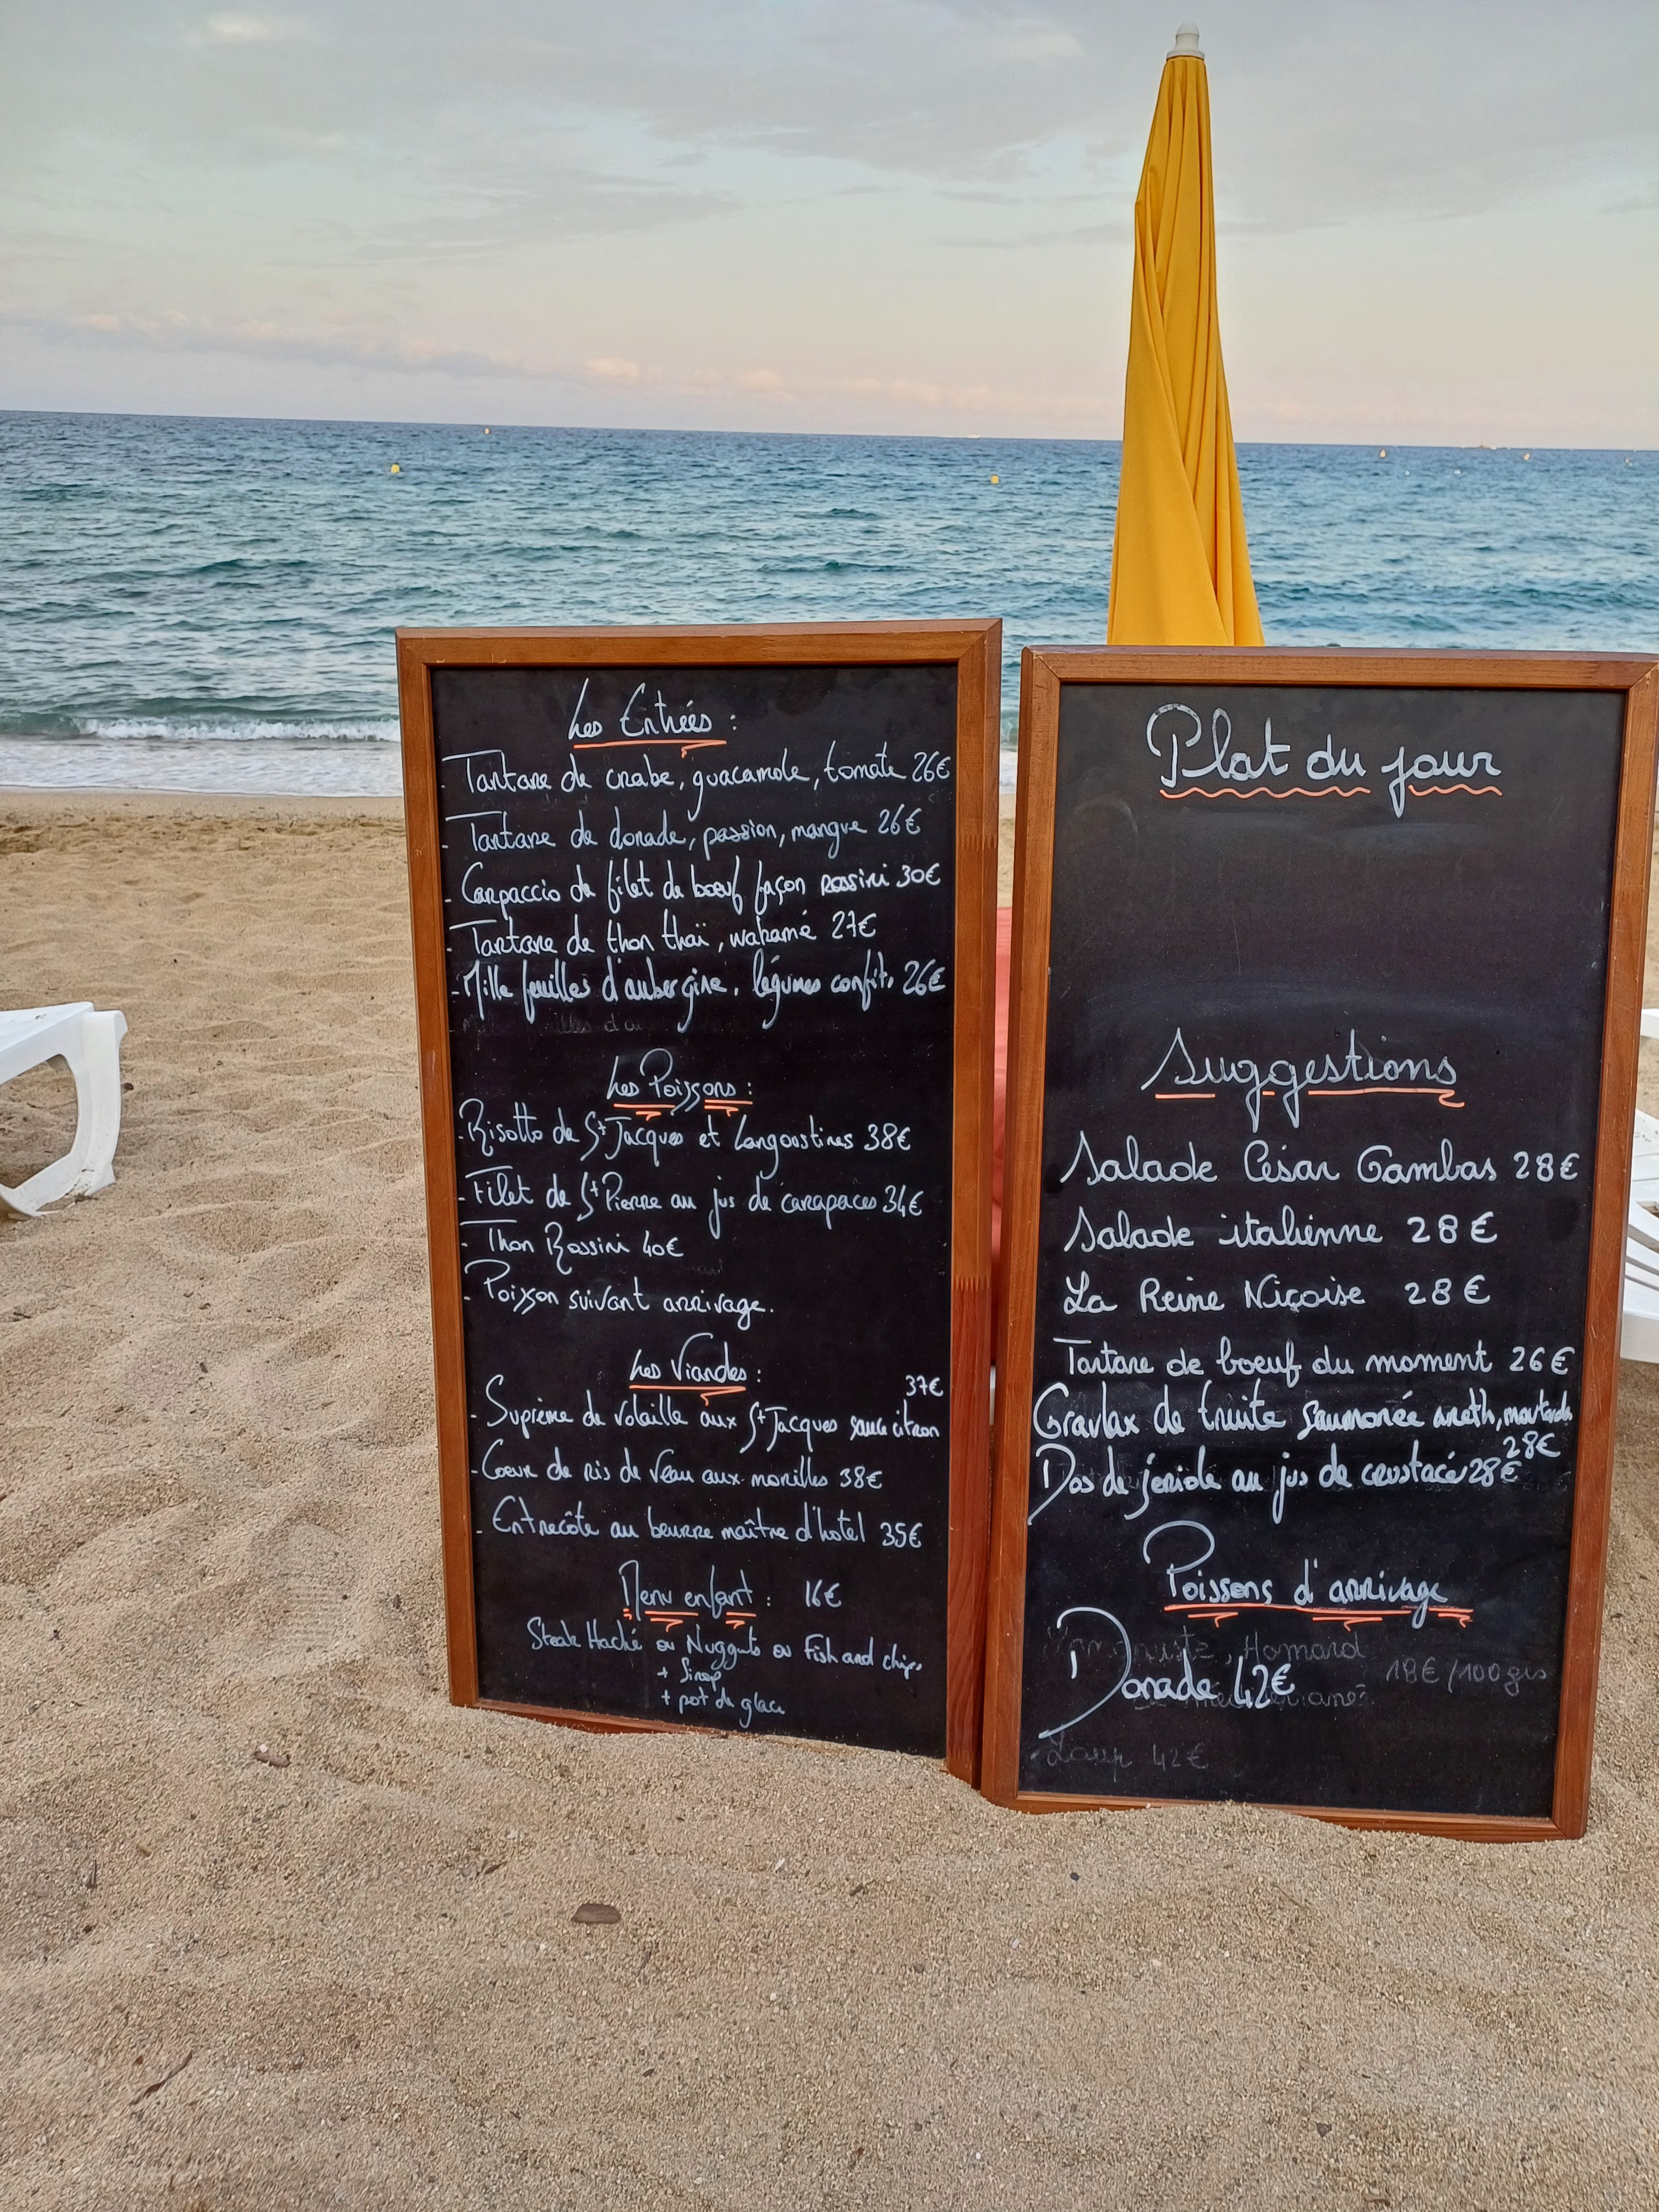 Les Entrées :
- Tartare de crabe, guacamole, tomate 26€
- Tartare de dorade, passion, mangue 26€
- Carpaccio de filet de bœuf façon Rossini 30€
- Tartare de thon thaï, wakamé 27€
- Mille feuilles d'aubergine, légumes confits 26€
Les Poissons :
- Risotto de St Jacques et Langoustines 38€
- Filet de St Pierre au jus de carapaces 34€
- Thon Rossini 40€
- Poisson suivant arrivage.
Les Viandes :
37€
- Suprème de Volaille aux St Jacques sauce citron
- Coeur de ris de Veau aux morilles 38€
- Entrecôte au beurre maître d'hotel 35€
Menu enfant : 16€
Steak Haché ou Nuggets ou Fish and chips
+ Sirop
+ pot de glace
Plat du jour
Suggestions
Salade César Gambas 28€
Salade italienne 28€
La Reine Niçoise 28€
Tartare de boeuf du moment 26€
Gravlax de truite saumonée aneth, moutarde
28€
Dos de sériole au jus de crustacé 28€
Poissons d'arrivage
Homard
18€/100grs
Dorade 42€
Loup 42€